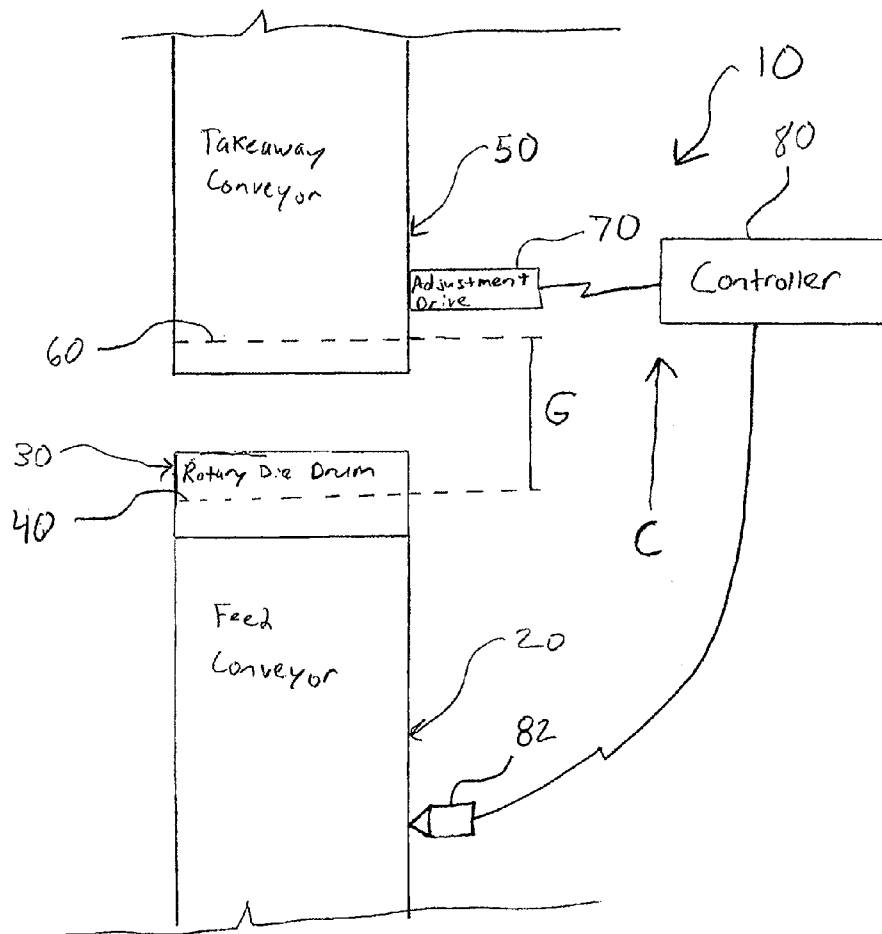 10
80
Takeaway
Conveyor
50
70
Adjustment
Drive
Controller
60
G
30
Rotary Die Drum
40
C
Feed
Conveyor
20
82